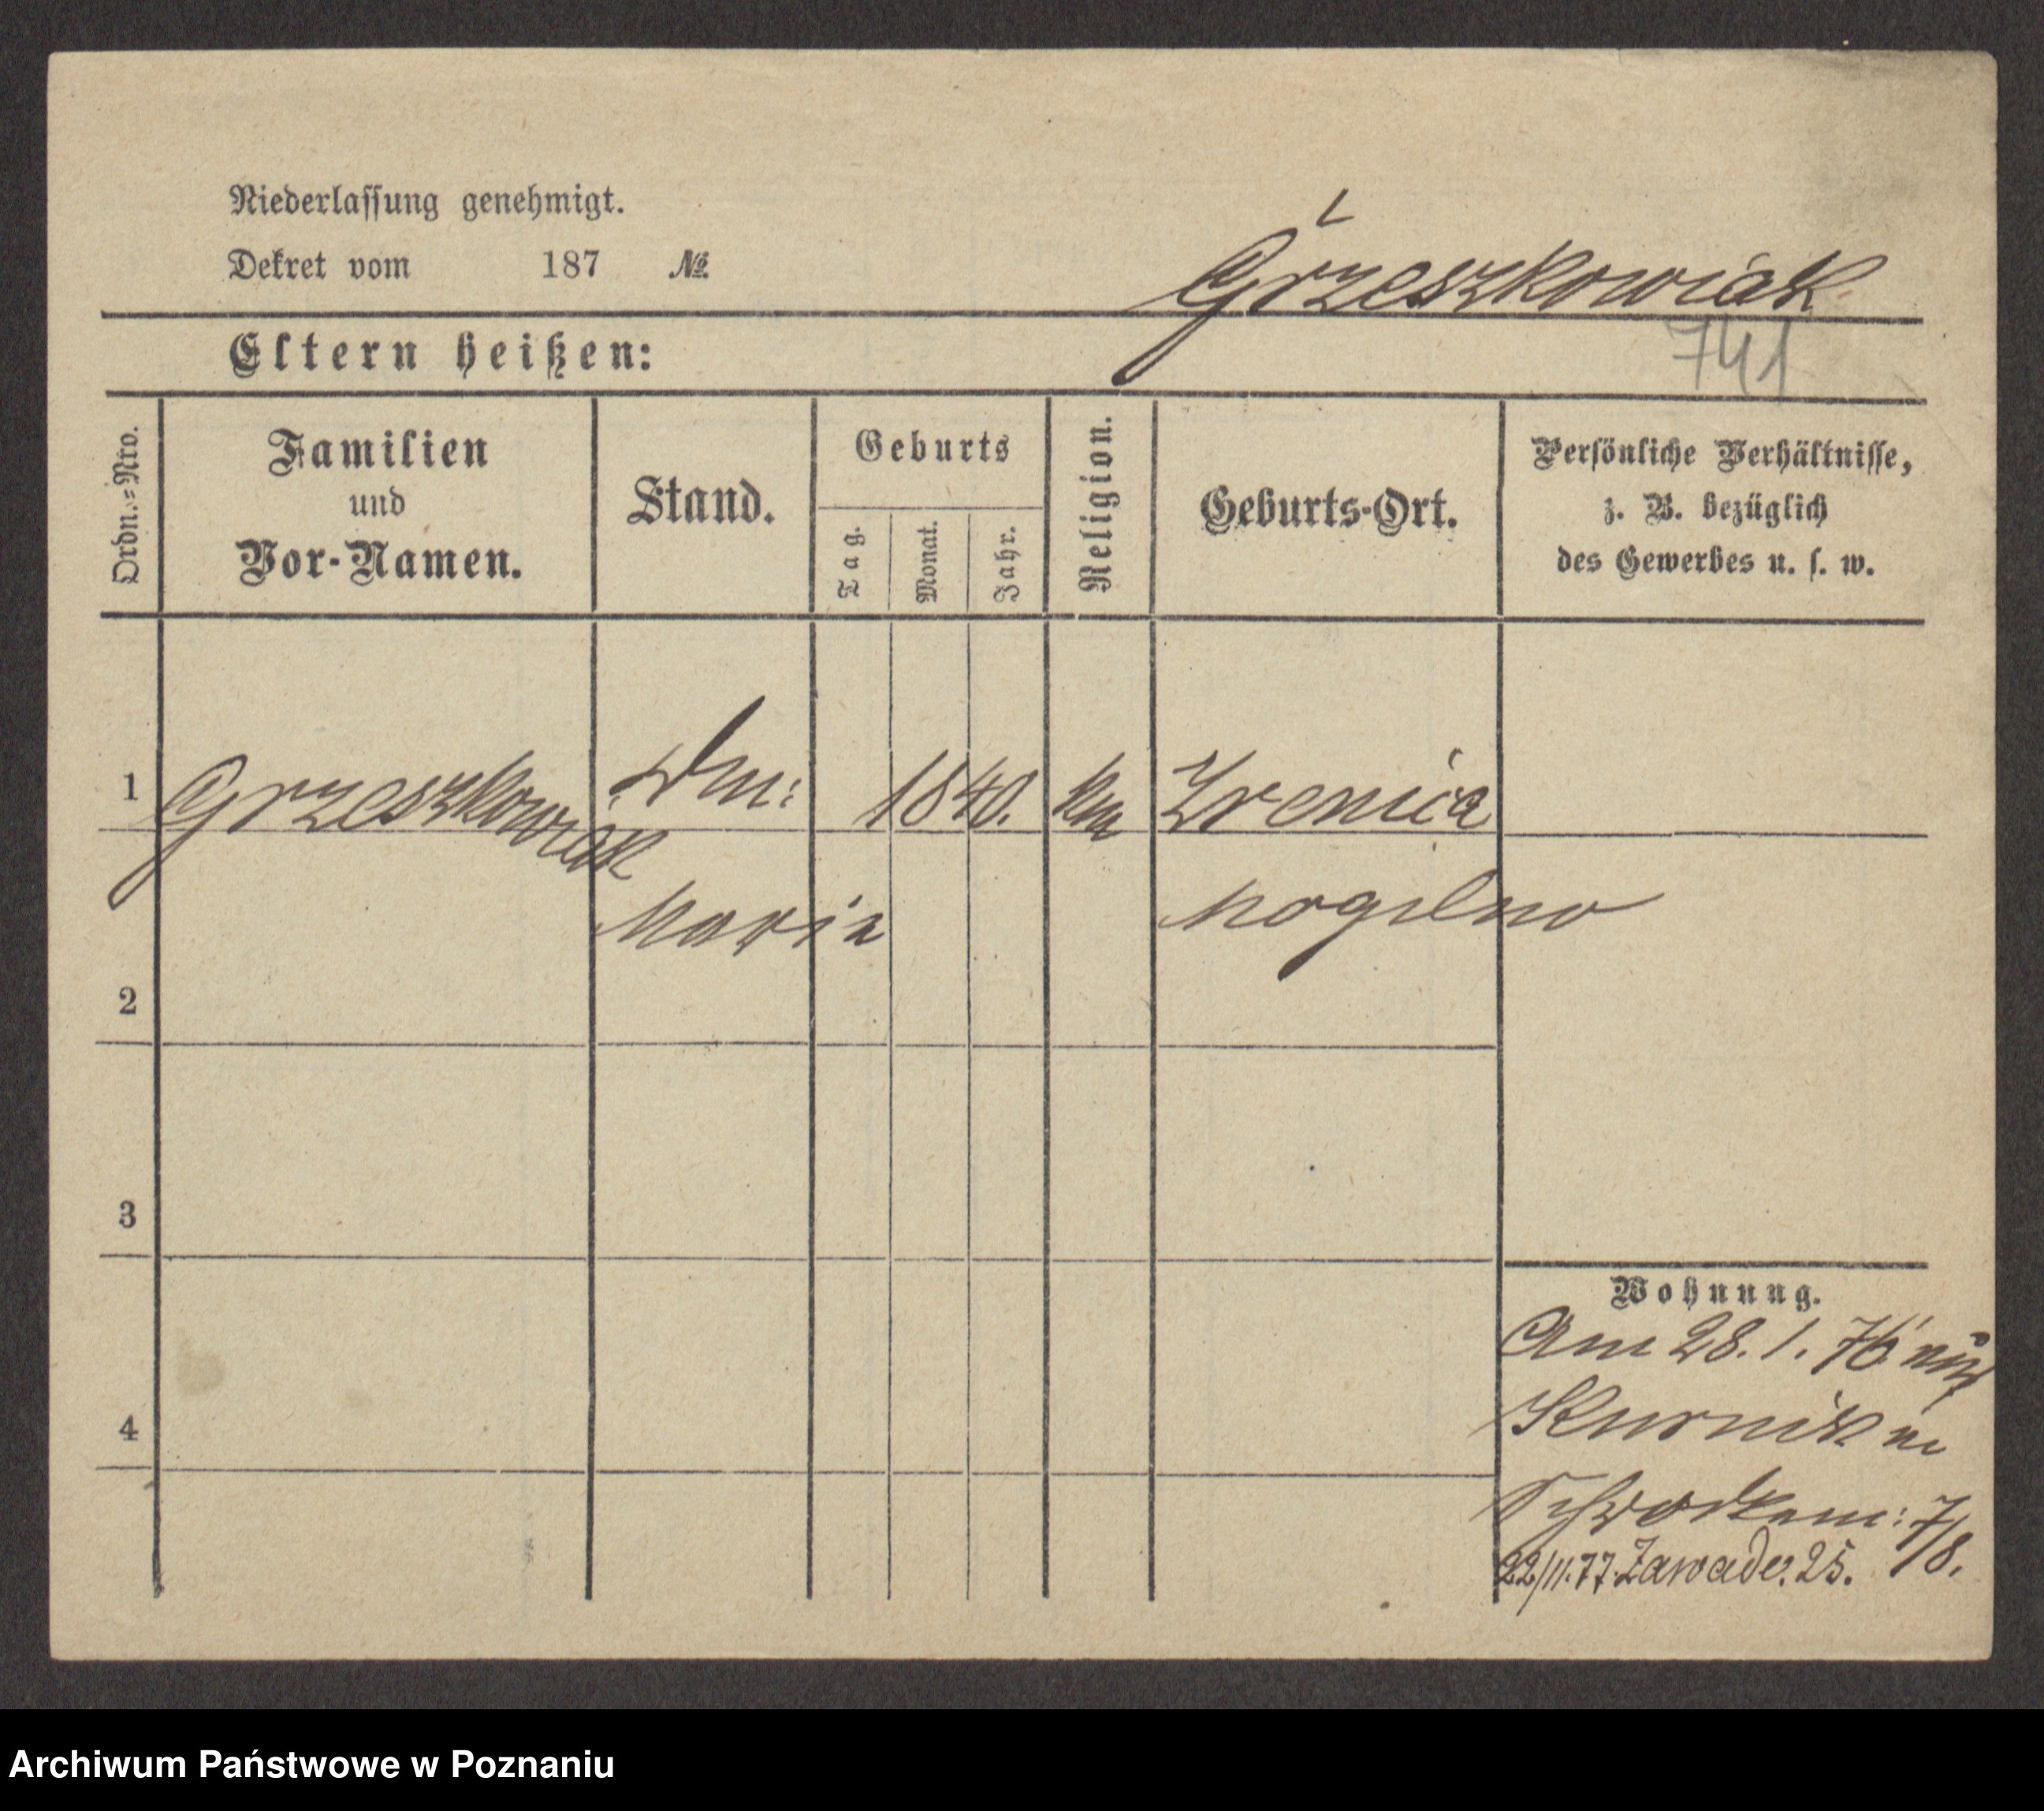 Niederlassung genehmigt.
Dekret vom 187 №
Grzeszkowiak
Eltern heißen:
741
Ordn.=Nro.
Familien
und
Vor-Namen.
Stand.
Geburts
Tag.
Monat.
Jahr.
Religion.
Geburts-Ort.
Persönliche Verhältnisse,
z. B. bezüglich
des Gewerbes u. s. w.
1 Grzeszkowiak 1840. Zrenica
Maria Mogilno
2
3
4
Wohnung.
Am 28. 1. 76
Kurnik
7/8.
22/11.77. Zawade. 25.
Archiwum Państwowe w Poznaniu